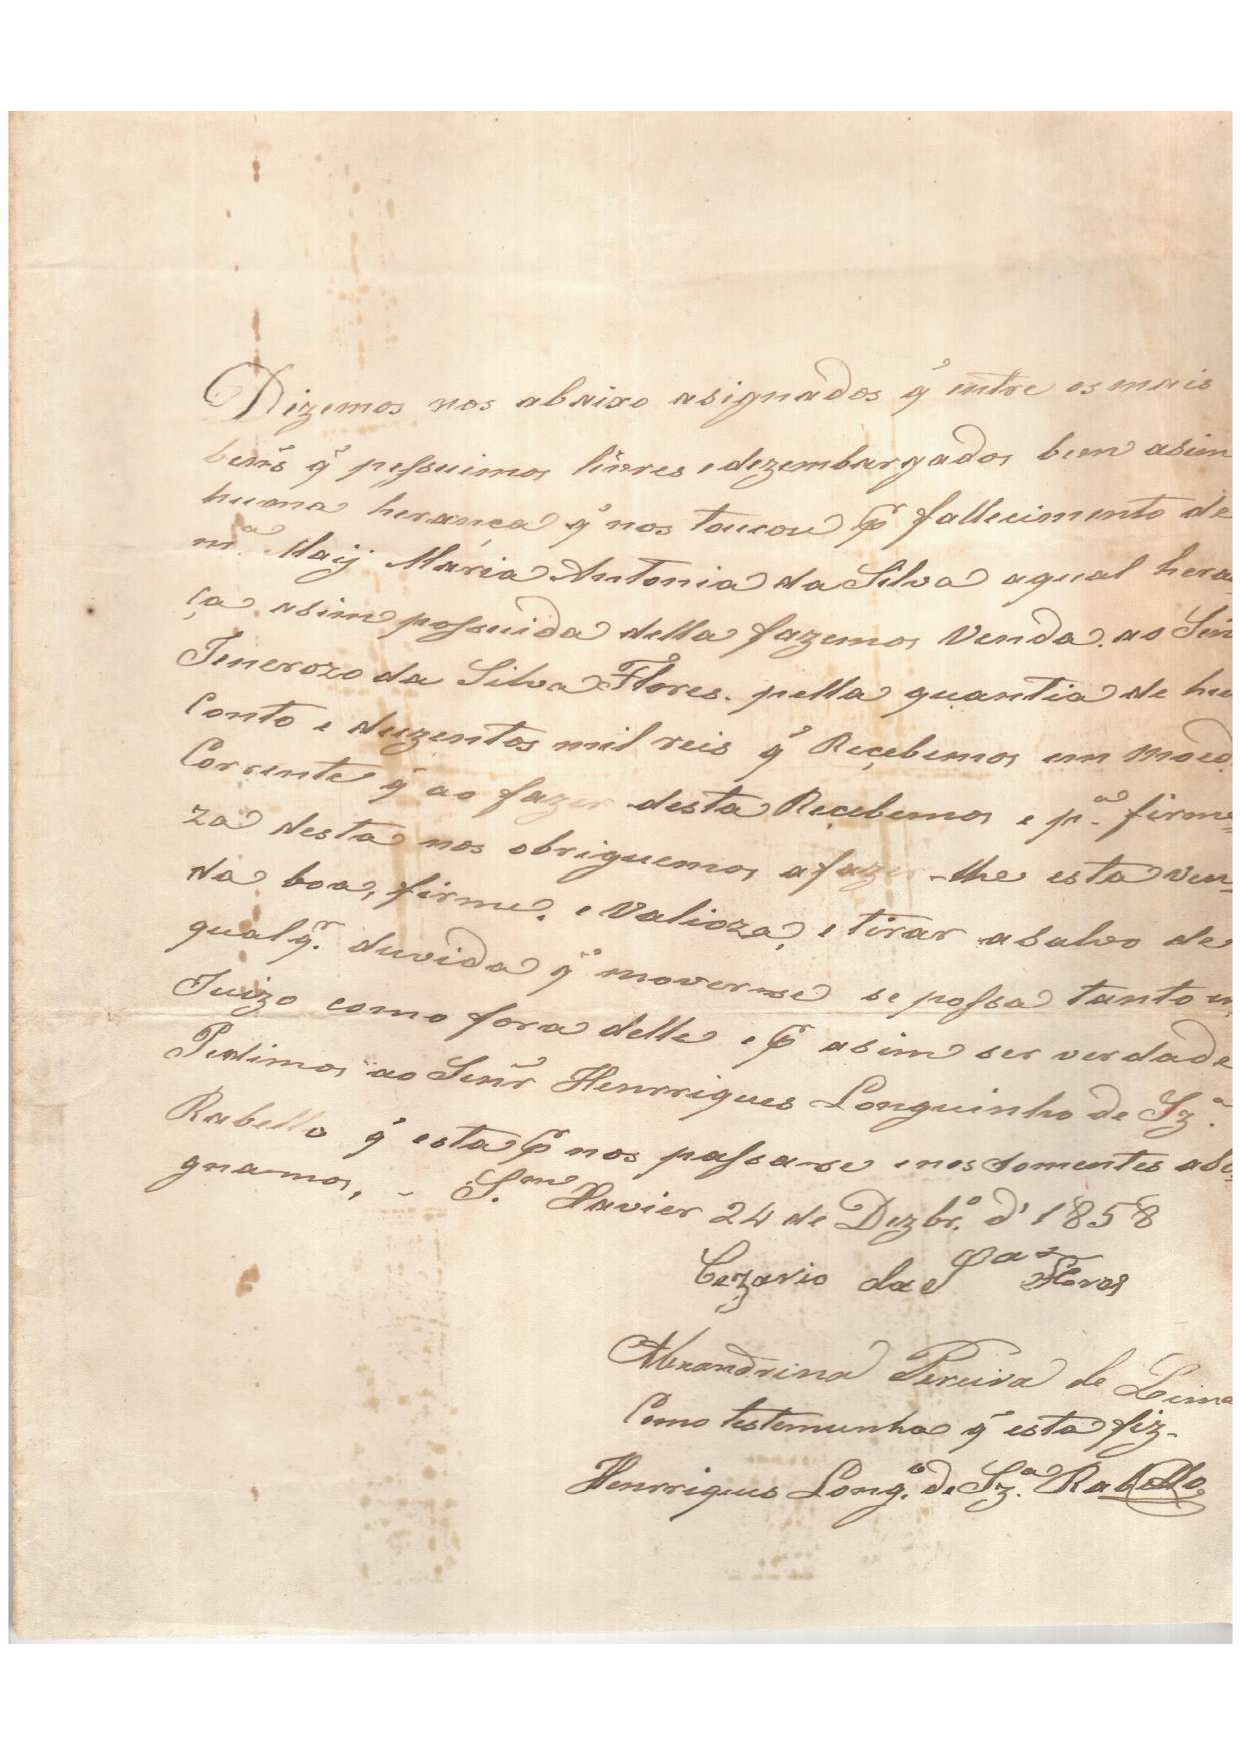 Dizemos nos abaixo asignados q̃ entre os mais
bens q̃ pessuimos livres e dezembargados bem asim
huma herança q̃ nos toucou por fallecimento de
m.ª Maij Maria Antonia da Silva aqual heran
ça asim possuida della fazemos Venda. ao Señ
Jenerozo da Silva Flores. pella quantia de hu
Conto e duzentos mil reis q̃ Recebemos em moed
Corrente q̃ ao fazer desta Recebemos e p.ª firme-
za desta nos obriguemos afazer-lhe esta ven-
da boa, firme, e Valioza, e tirar asalvo de
qualq.r duvida q̃ moverme se possa tanto em
Juizo como fora delle e por asim ser verdade
Pedimos ao Señr Henrriques Longuinho de Sz.ª
Rabello q̃ esta por nos passase e nos somentes asi-
gnamos, - S.     Xavier 24 de Dezbr.º d' 1858
Cezario da S.ª Flores
Alexandrina Pereira de Lima
Como testemunha q̃ esta fiz-
Henrriques Long.º de Sz.ª Rabello